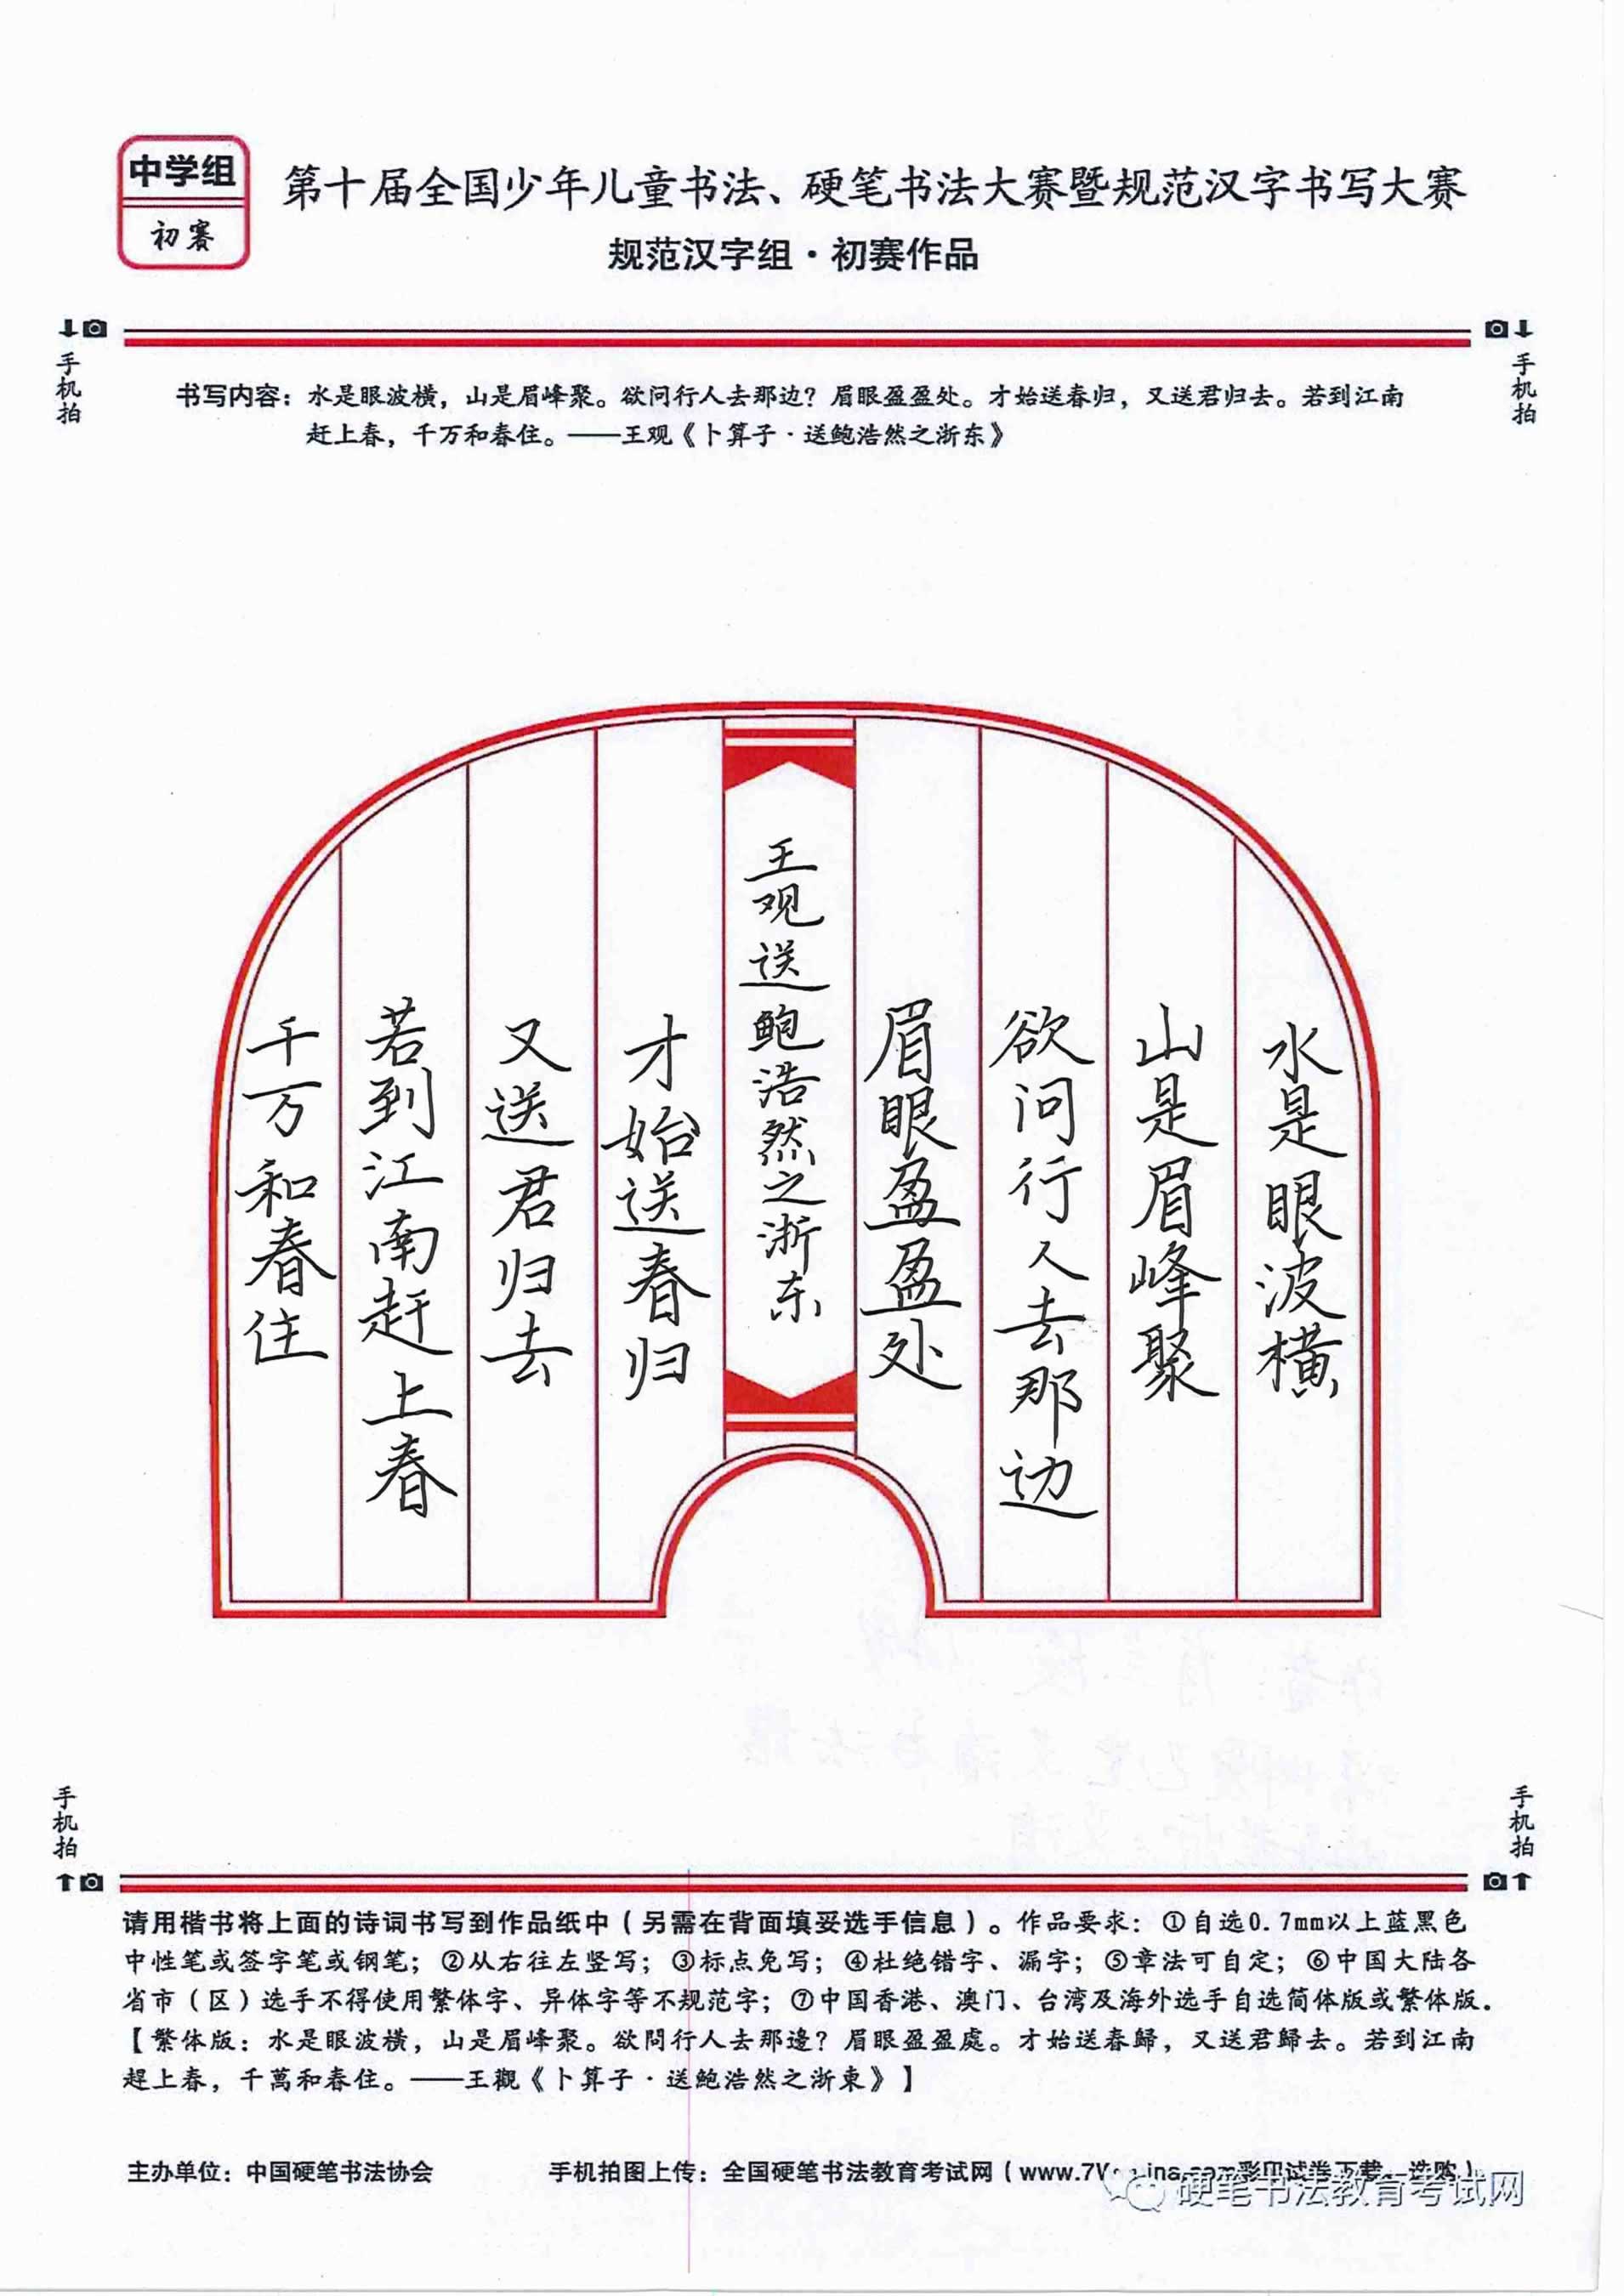 中学组
初赛
第十届全国少年儿童书法、硬笔书法大赛暨规范汉字书写大赛
规范汉字组·初赛作品
手机拍
手机拍
书写内容：水是眼波横，山是眉峰聚。欲问行人去那边？眉眼盈盈处。才始送春归，又送君归去。若到江南
赶上春，千万和春住。——王观《卜算子·送鲍浩然之浙东》
水是眼波横
山是眉峰聚
欲问行人去那边
眉眼盈盈处
王观送鲍浩然之浙东
才始送春归
又送君归去
若到江南赶上春
千万和春住
手机拍
手机拍
请用楷书将上面的诗词书写到作品纸中（另需在背面填妥选手信息）。作品要求：①自选0.7mm以上蓝黑色
中性笔或签字笔或钢笔；②从右往左竖写；③标点免写；④杜绝错字、漏字；⑤章法可自定；⑥中国大陆各
省市（区）选手不得使用繁体字、异体字等不规范字；⑦中国香港、澳门、台湾及海外选手自选简体版或繁体版。
【繁体版：水是眼波横，山是眉峰聚。欲問行人去那邊？眉眼盈盈處。才始送春歸，又送君歸去。若到江南
趕上春，千萬和春住。——王觀《卜算子·送鲍浩然之浙東》】
主办单位：中国硬笔书法协会
手机拍图上传：全国硬笔书法教育考试网（www.7
硬笔书法教育考试网